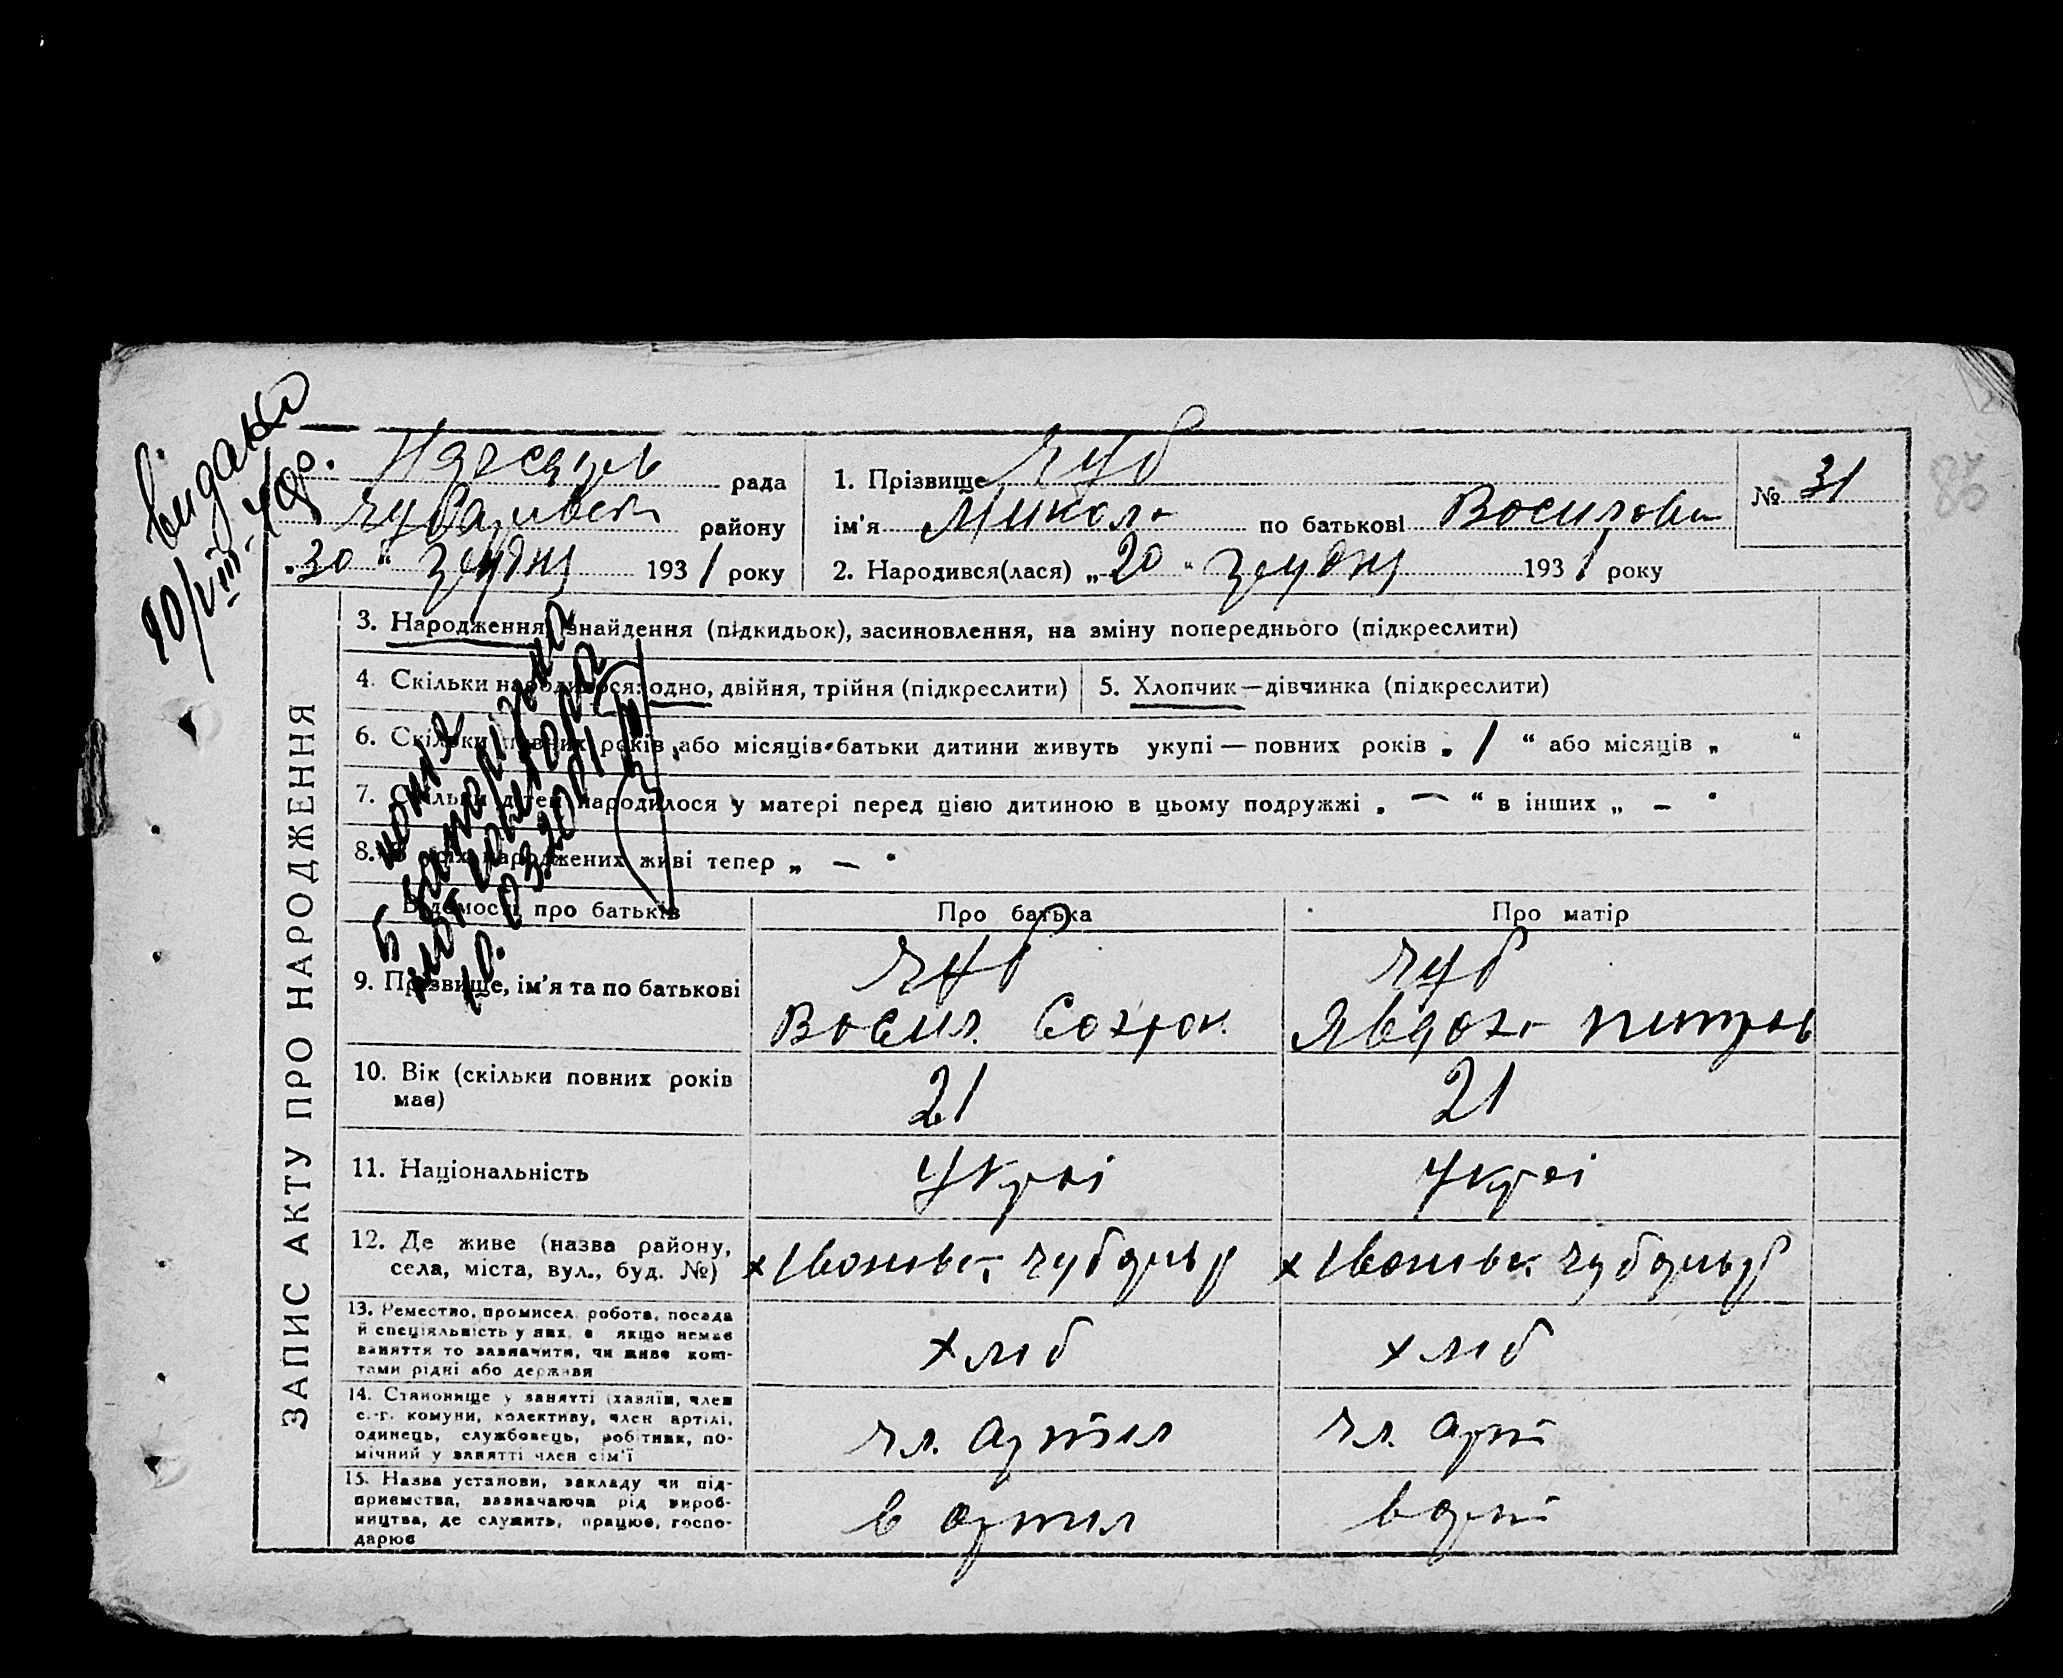 видано
10/VIII-40р.
рада
району
„30“ грудня 1931 року
1. Прізвище Чуб
ім'я Микола по батькові Василови
2. Народився(лася) „20“ грудня 1931 року
№ 31
86
ЗАПИС АКТУ ПРО НАРОДЖЕННЯ
3. Народження, знайдення (підкидьок), засиновлення, на зміну попереднього (підкреслити)
4. Скільки народилося: одно, двійня, трійня (підкреслити)
5. Хлопчик—дівчинка (підкреслити)
6. Скільки повних років або місяців батьки дитини живуть укупі — повних років „1“ або місяців „ “
7. Скільки дітей народилося у матері перед цією дитиною в цьому подружжі „—“ в інших „—“
8. З усіх народжених живі тепер „—“
Відомості про батьків
Про батька
Про матір
9. Прізвище, ім'я та по батькові
Чуб
Васил. Сохрон.
Чуб
Явдоха Питров
10. Вік (скільки повних років має)
21
21
11. Національність
Украі
Украі
12. Де живе (назва району, села, міста, вул., буд. №)
х Івановк.
х Івановк.
13. Ремество, промисел, робота, посада
й спеціяльність у них, а якщо немає
заняття то зазначити, чи живе кош-
тами рідні або держави
хліб
хліб
14. Становище у занятті (хазяїн, член
с.-г. комуни, колективу, член артілі,
одинець, службовець, робітник, по-
мічний у занятті член сім'ї
чл. артіл
чл. арт
15. Назва установи, закладу чи під-
приємства, зазначаюча рід вироб-
ництва, де служить, працює, госпо-
дарює
в артил
в арт